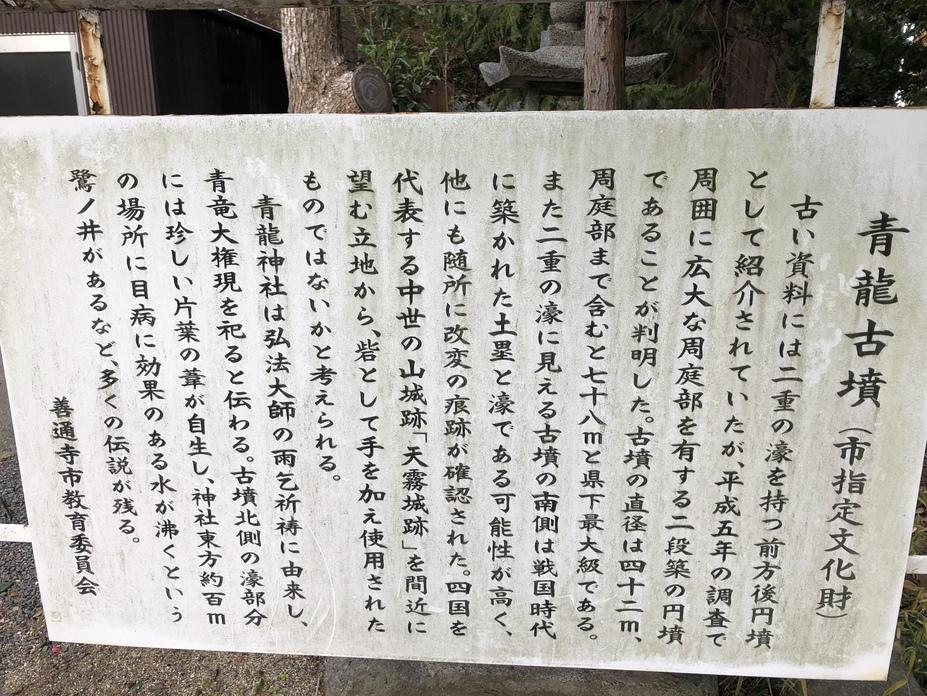 青龍古墳(市指定文化財)
古い資料には二重の濠を持つ前方後円墳
として紹介されていたが、平成五年の調査で
周囲に広大な周庭部を有する二段築の円墳
であることが判明した。古墳の直径は四十二m、
周庭部まで含むと七十八mと県下最大級である。
また二重の濠に見える古墳の南側は戦国時代
に築かれた土塁と濠である可能性が高く、
他にも随所に改変の痕跡が確認された。四国を
代表する中世の山城跡「天霧城跡」を間近に
望む立地から、砦として手を加え使用された
ものではないかと考えられる。
青龍神社は弘法大師の雨乞祈祷に由来し、
青竜大権現を祀ると伝わる。古墳北側の濠部分
には珍しい片葉の葦が自生し、神社東方約百m
の場所に目病に効果のある水が沸くという
鷺ノ井があるなど、多くの伝説が残る。
善通寺市教育委員会